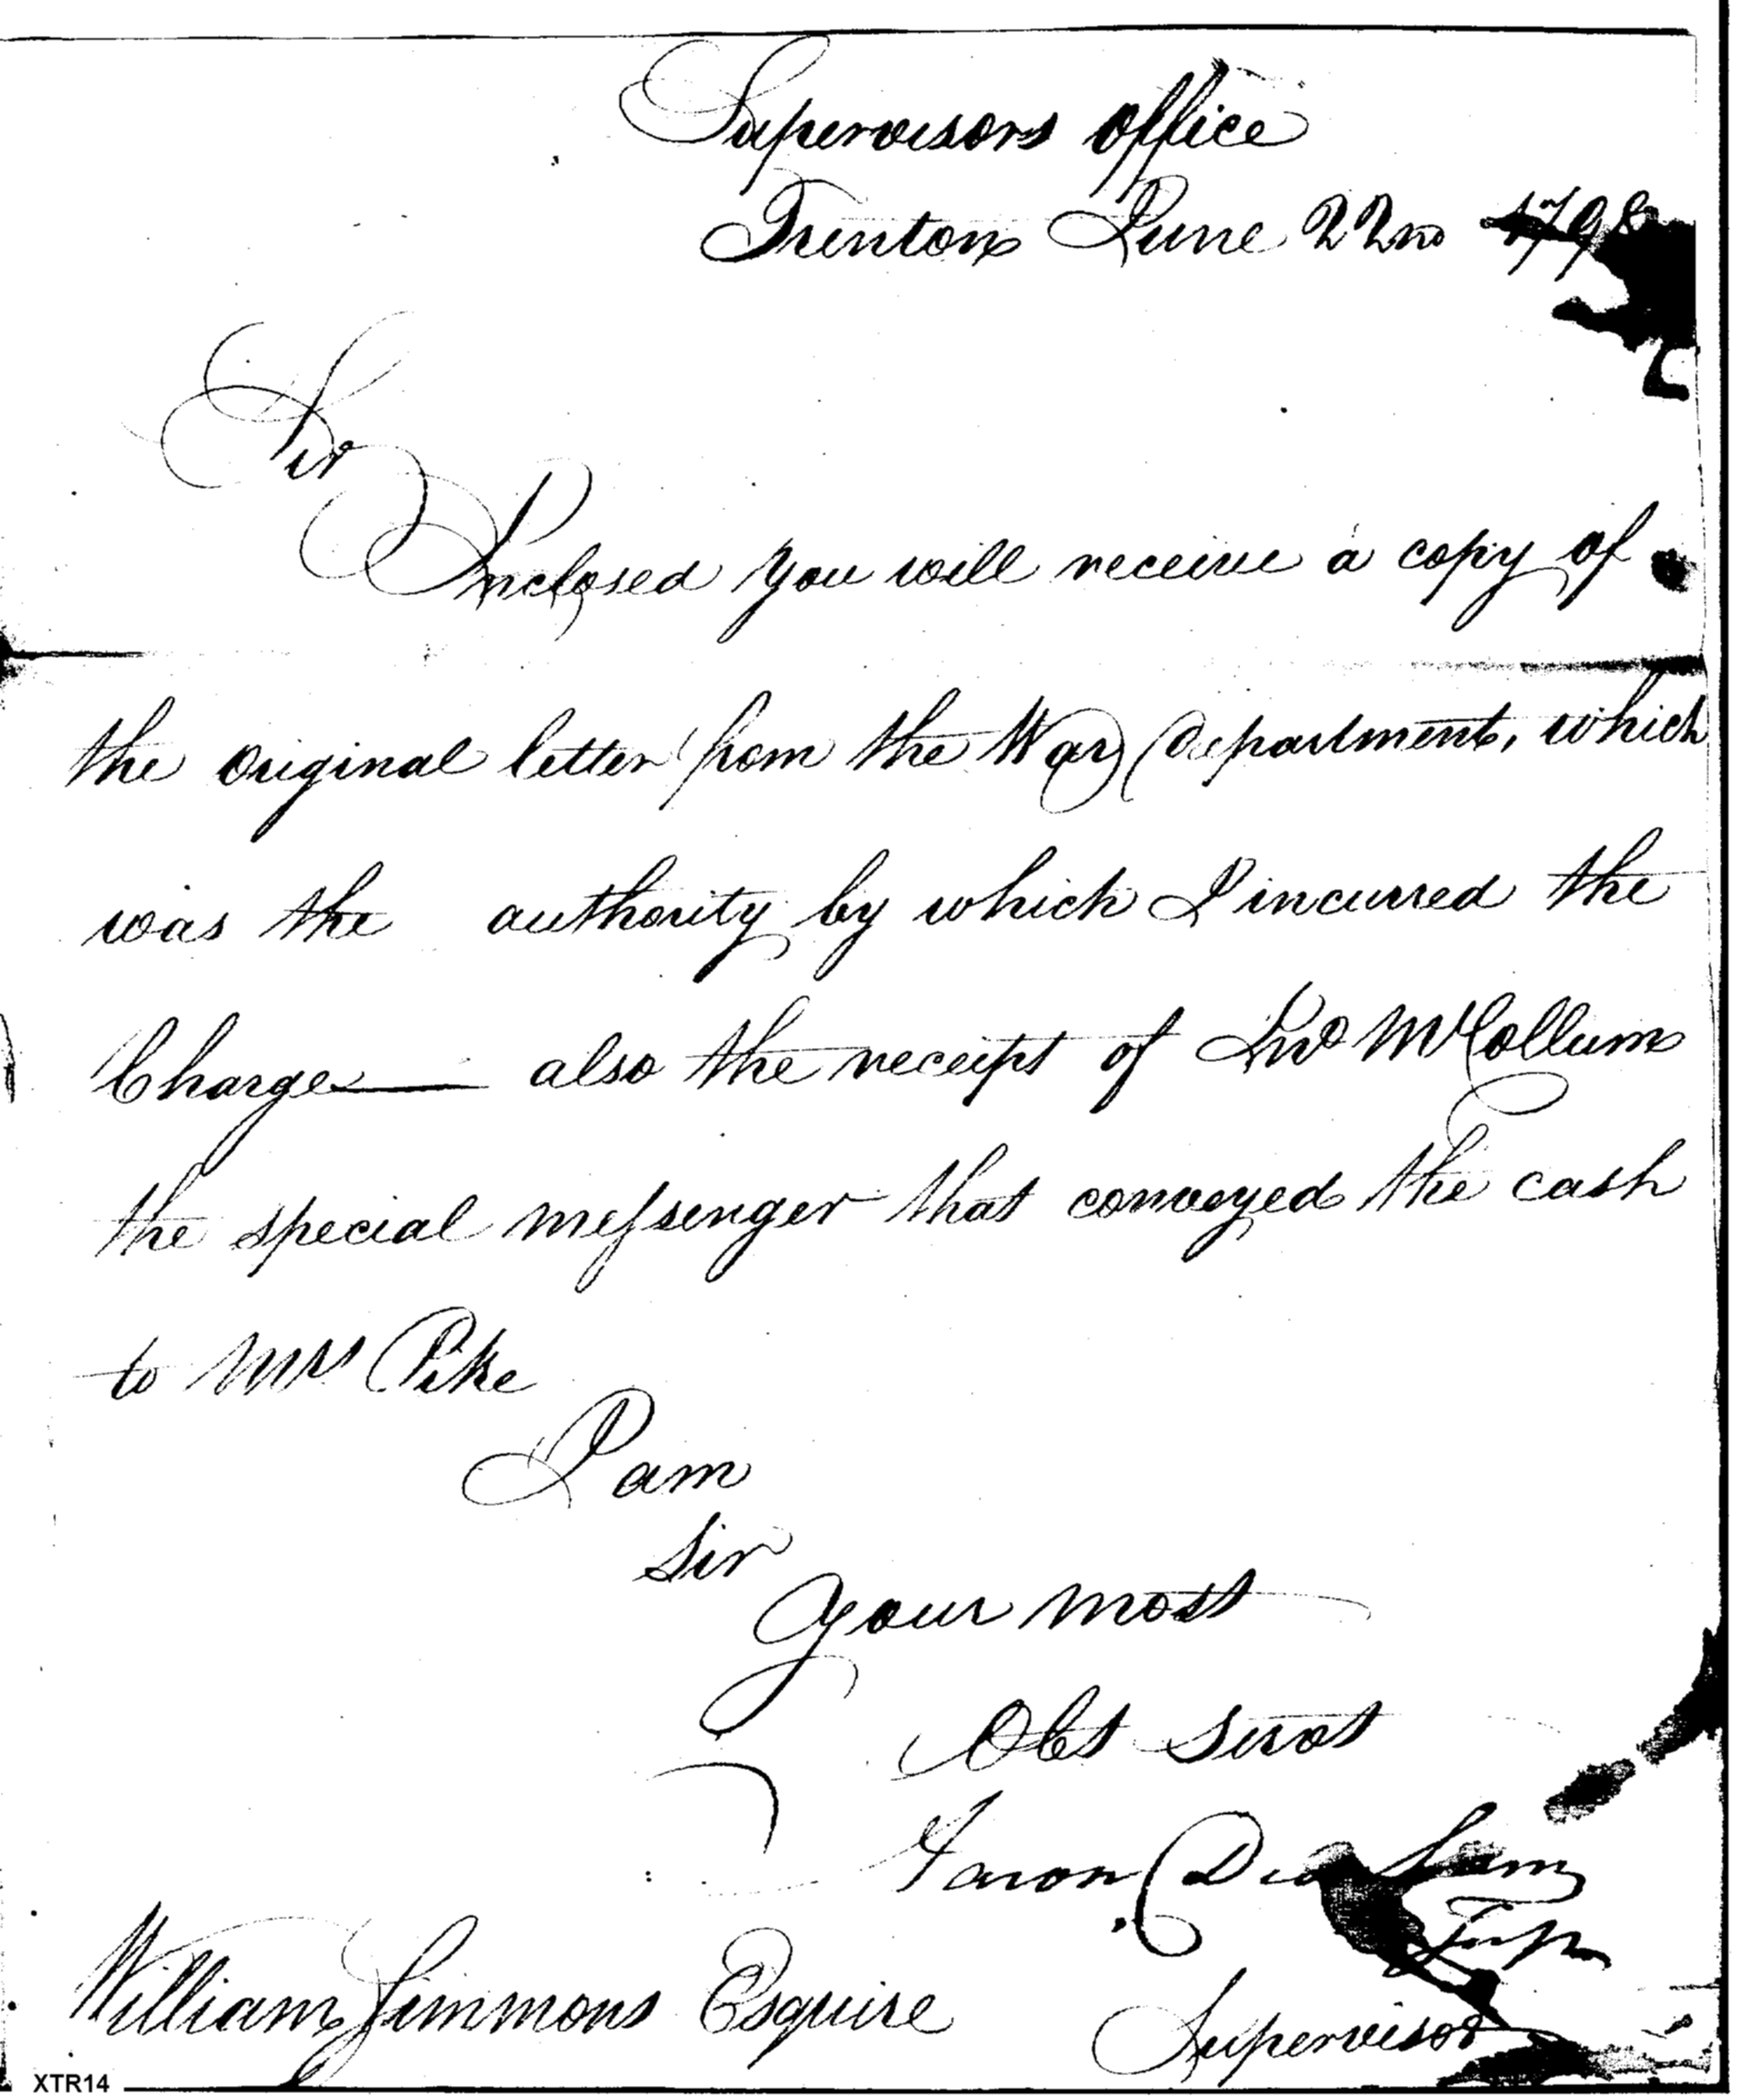 Supervisors Office
Trenton June 22nd 1798
Sir
Inclosed you will receive a copy of
the original letter from the War Department, which
was the authority by which I incurred the
Charge — also the receipt of Jno McCollum
the special messenger that conveyed the cash
to Mrs Pike
I am
Sir
Your most
Obt Servt
Aaron Dunham
Supervisor
William Simmons Esquire
XTR14